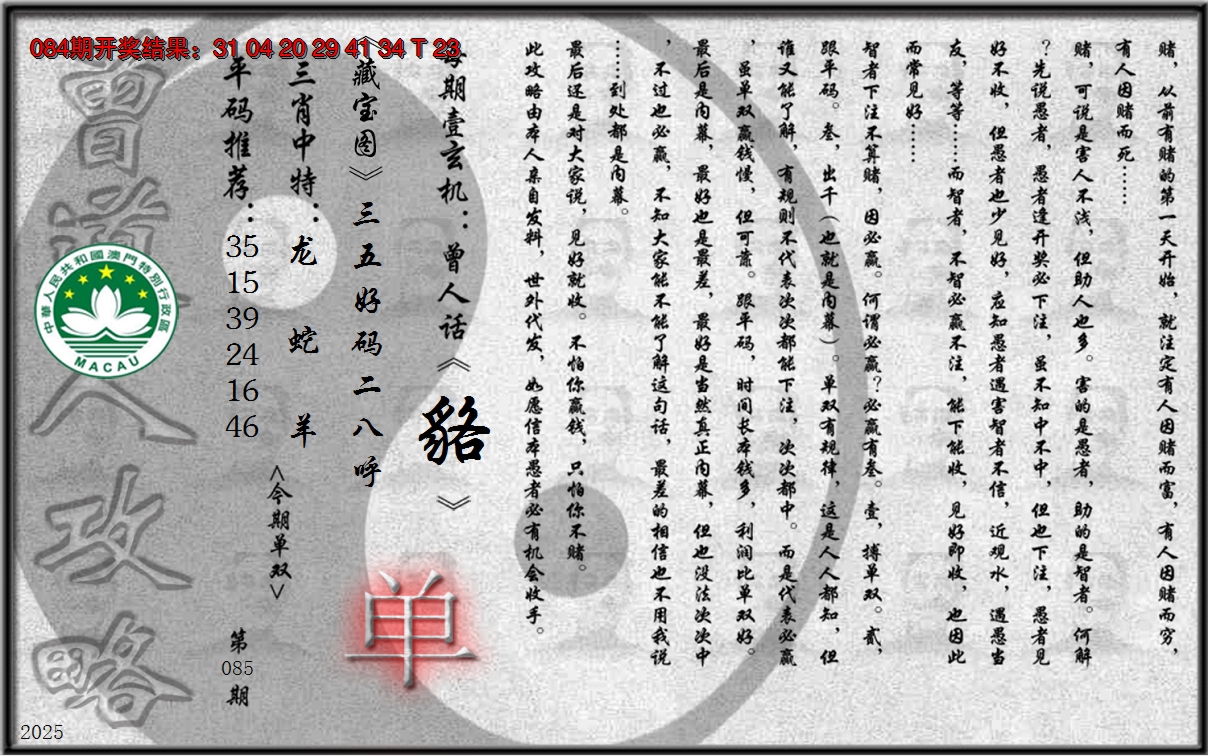 084期开奖结果：31 04 20 29 41 34 T 23
赌，从前有赌的第一天开始，就注定有人因赌而富，有人因赌而穷，
有人因赌而死……
赌，可说是害人不浅，但助人也多。害的是愚者，助的是智者。何解
？先说愚者，愚者逢开奖必下注，虽不知中不中，但也下注，愚者见
好不收，但愚者也少见好，应知愚者遇害智者不信，近观水，遇愚当
友，等等……而智者，不智必赢不注，能下能收，见好即收，也因此
而常见好……
智者下注不算赌，因必赢。何谓必赢？必赢有叁。壹，搏单双。贰，
跟平码。叁，出千（也就是内幕）。单双有规律，这是人人都知，但
谁又能了解，有规则不代表次次都能下注，次次都中。而是代表必赢
，虽单双赢钱慢，但可靠。跟平码，时间长本钱多，利润比单双好。
最后是内幕，最好也是最差，最好是当然真正内幕，但也没法次次中
，不过也必赢，不知大家能不能了解这句话，最差的相信也不用我说
……到处都是内幕。
最后还是对大家说，见好就收。不怕你赢钱，只怕你不赌。
此攻略由本人亲自发料，世外代发，如愿信本愚者必有机会收手。
每期壹玄机：曾人话《貉》
《藏宝图》三五好码二八呼
单
三肖中特：龙 蛇 羊
<今期单双>
平码推荐：35 15 39 24 16 46
第085期
曾道人攻略
中華人民共和國澳門特別行政區
MACAU
2025